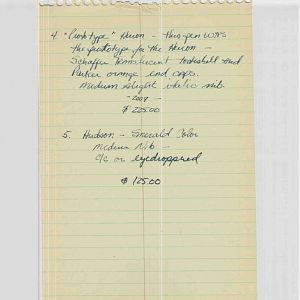 4. "Prototype" Heron - this pen was
the prototype for the Heron -
Schaffer translucent toshell and
Parker orange end caps.
Medium slight italic nib.
-2009-
$ 225.00
5. Hudson - Emerald Color
Medium Nib -
c/c or eyedroppered
$ 125.00